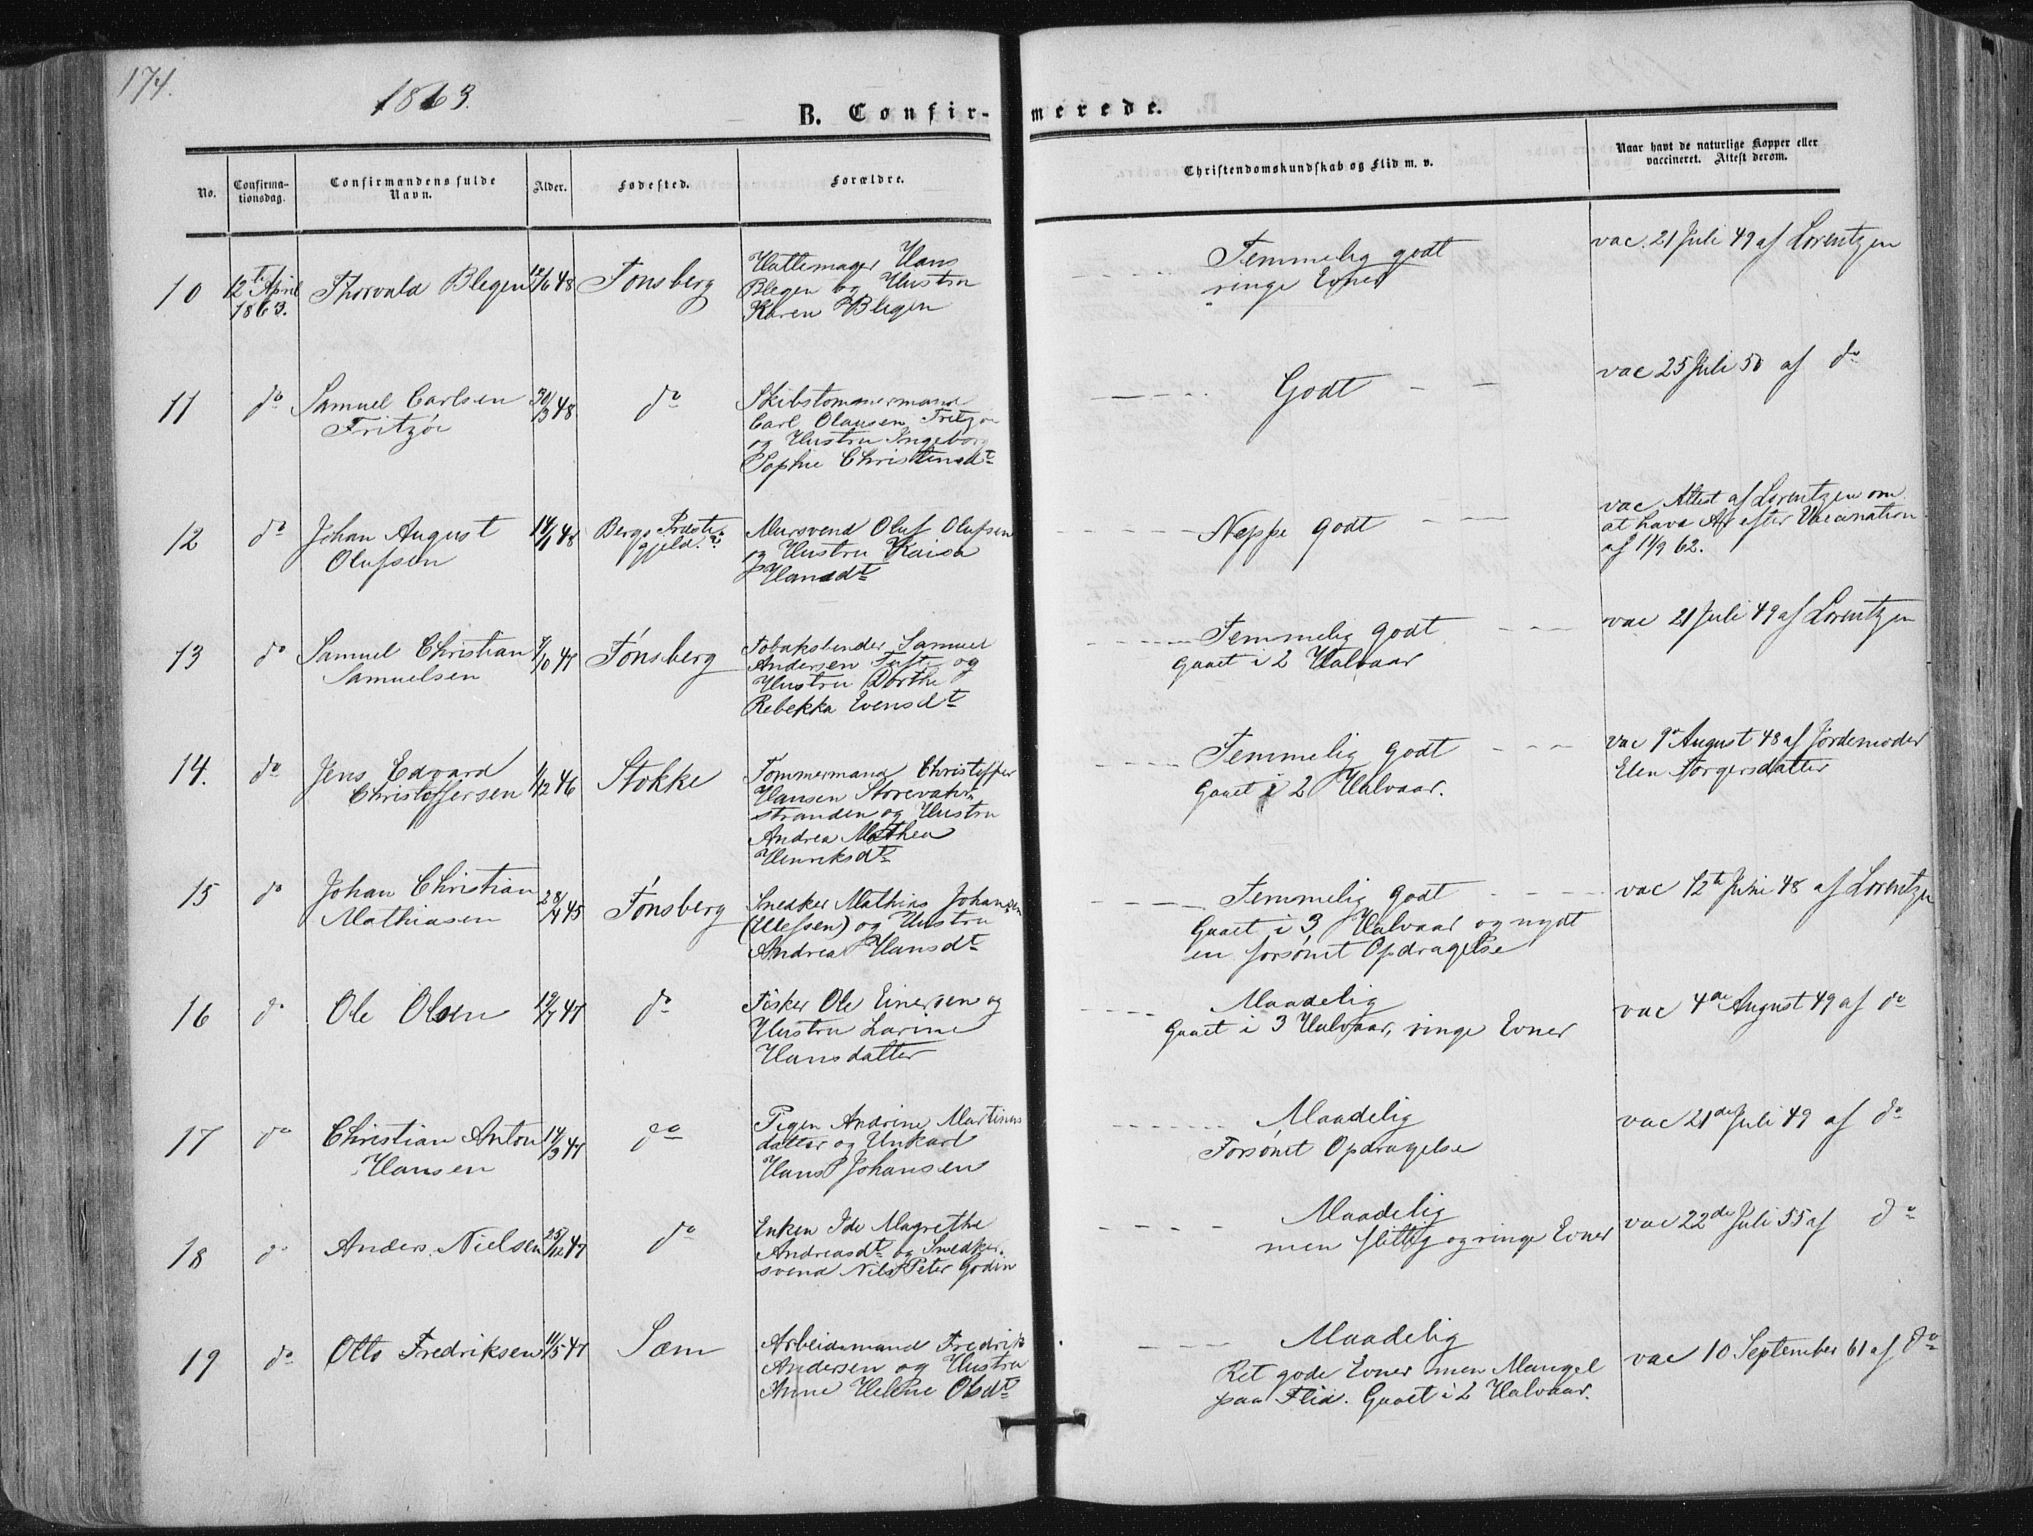 174.
1863.
B. Confir- merede.
No.
Confirma-
tionsdag.
Confirmandens fulde
Navn.
Alder.
Fødested.
Forældre.
Christendomskundskab og Flid m. v.
Naar havt de naturlige Kopper eller
vaccineret. Attest derom.
10
12te April
1863.
Thorvald Blegen
/6 48
Tønsberg
Hattemager Hans
Blegen og Hustru
Karen Blegen
Temmelig godt
ringe Evner
vac. 21 Juli 49 af Lorentzen
11
do
Samuel Carlsen
Fritzøe
30/3 48
do
Skibstømmermand
Carl Olausen Fritzøe
og Hustru Ingeborg
Sophie Christensdt
Godt
vac 25 Juli 50 af do
12
do
Johan August
Olufsen
14/1 48
Bergs Præste-
gjeld.
Mursvend Oluf Olufsen
og Hustru Kaisa
Hansdt
Neppe godt
vac Attest af Lorentzen om
at have Ar efter Vaccination
af 11/9 62.
13
do
Samuel Christian
Samuelsen
/10 47
Tønsberg
Tobaksbinder Samuel
Andersen Tufte og
Hustru Dorthe
Rebekka Evensdt
Temmelig godt
Gaaet i 2 Halvaar
vac 21 Juli 49 af Lorentzen
14.
do
Jens Edvard
Christoffersen
/12 46
Stokke
Tømmermand Christoffer
Hansen Storevahr
stranden og Hustru
Andrea Mathea
Henriksdt
Temmelig godt
Gaaet i 2 Halvaar.
vac 9de August 48 af Jordemoder
Elen Torgersdatter
15
do
Johan Christian
Mathiasen
28/4 45
Tønsberg
Snedker Mathias Johansen
(Ulefsen) og Hustru
Andrea Hansdt
Temmelig godt
Gaaet i 3 Halvaar og nydt
en forsømt Opdragelse
vac 12te Juni 48 af Lorentzen
16
do
Ole Olsen
19/7 47
do
Fisker Ole Einersen og
Hustru Larine
Hansdatter
Maadelig
Gaaet i 3 Halvaar, ringe Evner
vac 4de August 49 af do
17
do
Christian Anton
Hansen
14/3 47
do
Pigen Andrine Martinus
datter og Unkarl
Hans Johansen
Maadelig
Forsømt Opdragelse
vac 21de Juli 49 af do
18
do
Anders Nielsen
25/12 47
do
Enken Ide Magrethe
Andreasdt og Snedker-
svend Nils Peter Godin
Maadelig
men flittig og ringe Evner
vac 22de Juli 55 af do
19
do
Otto Fredriksen
11/5 47
Sæm
Arbeidsmand Fredrik
Andersen og Hustru
Anne Helene Olsdt
Maadelig
Ret gode Evner men Mangel
paa Flid. Gaaet i 2 Halvaar.
vac 10 September 61 af do